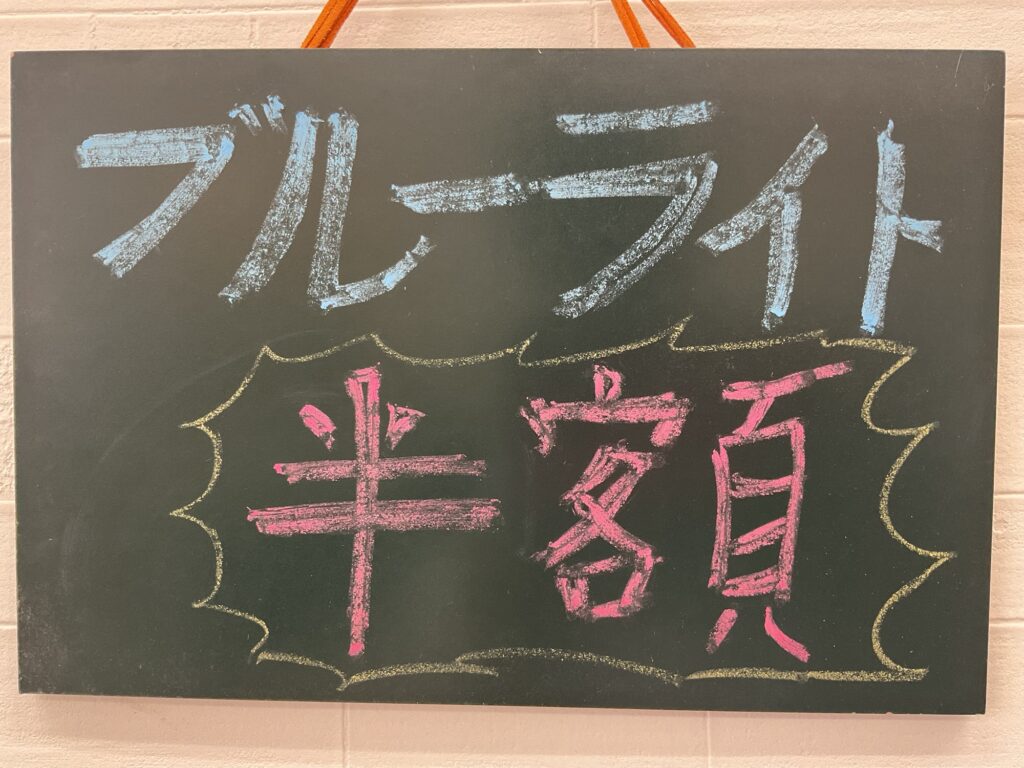 ブルーライト
半額